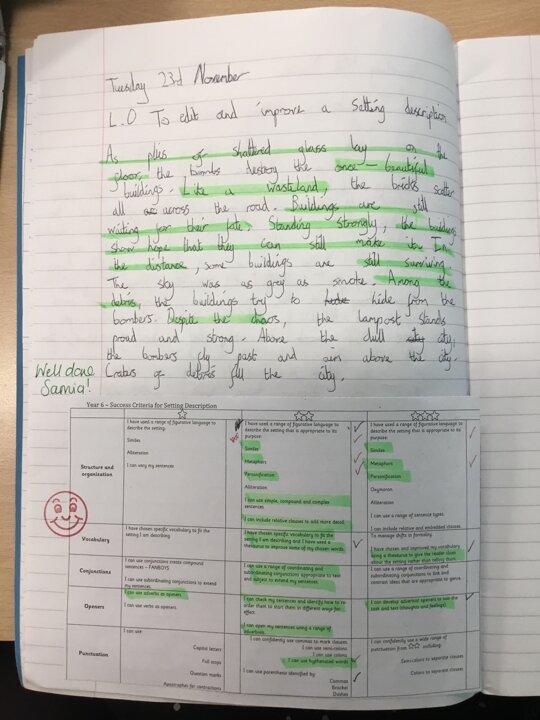 Tuesday 23rd November
L.O To edit and improve a setting description
As piles of shattered glass lay on the
floor, the bombs destroy the once-beautiful
buildings. Like a wasteland, the bricks scatter
all across the road. Buildings are still
waiting for their fate. Standing strongly, the buildings
show hope that they can still make it. In
the distance, some buildings are still surviving.
The sky was as grey as smoke. Among the
debris, the buildings try to hide from the
bombers. Despite the chaos, the lampost stands
proud and strong. Above the dull city,
the bombers fly past and aim above the city.
Crates of debris fill the city.
Well done
Samia!
Year 6 – Success Criteria for Setting Description
Structure and organisation
I have used a range of figurative language to describe the setting.
Similes
Alliteration
I can vary my sentences
I have used a range of figurative language to describe the setting that is appropriate to its purpose.
Similes
Metaphors
Personification
Alliteration
I can use simple, compound and complex sentences
I can include relative clauses to add more detail
I have used a range of figurative language to describe the setting that is appropriate to its purpose.
Similes
Metaphors
Personification
Oxymoron
Alliteration
I can use a range of sentence types.
I can include relative and embedded clauses.
Vocabulary
I have chosen specific vocabulary to fit the setting I am describing
I have chosen specific vocabulary to fit the setting I am describing and I have used a thesaurus to improve some of my chosen words.
To manage shifts in formality.
I have chosen and improved my vocabulary using a thesaurus to give the reader clues about the setting rather than telling them.
Conjunctions
I can use conjunctions create compound sentences – FANBOYS
I can use subordinating conjunctions to extend my sentences.
I can use a range of coordinating and subordinating conjunctions appropriate to text and subject to extend my sentences.
I can use a range of coordinating and subordinating conjunctions to link and contrast ideas that are appropriate to genre.
Openers
I can use adverbs as openers
I can use verbs as openers.
I can check my sentences and identify how to re-order them to start them in different ways for effect.
I can open my sentences using a range of adverbials.
I can develop adverbial openers to suit the task and text (thoughts and feelings)
Punctuation
I can use:
Capital letters
Full stops
Question marks
Apostrophes for contractions
I can confidently use commas to mark clauses.
I can use semi-colons
I can use colons
I can use hyphenated words
I can use parenthesis identified by:
Commas
Bracket
Dashes
I can confidently use a wide range of punctuation from including:
Semicolons to separate clauses
Colons to separate clauses